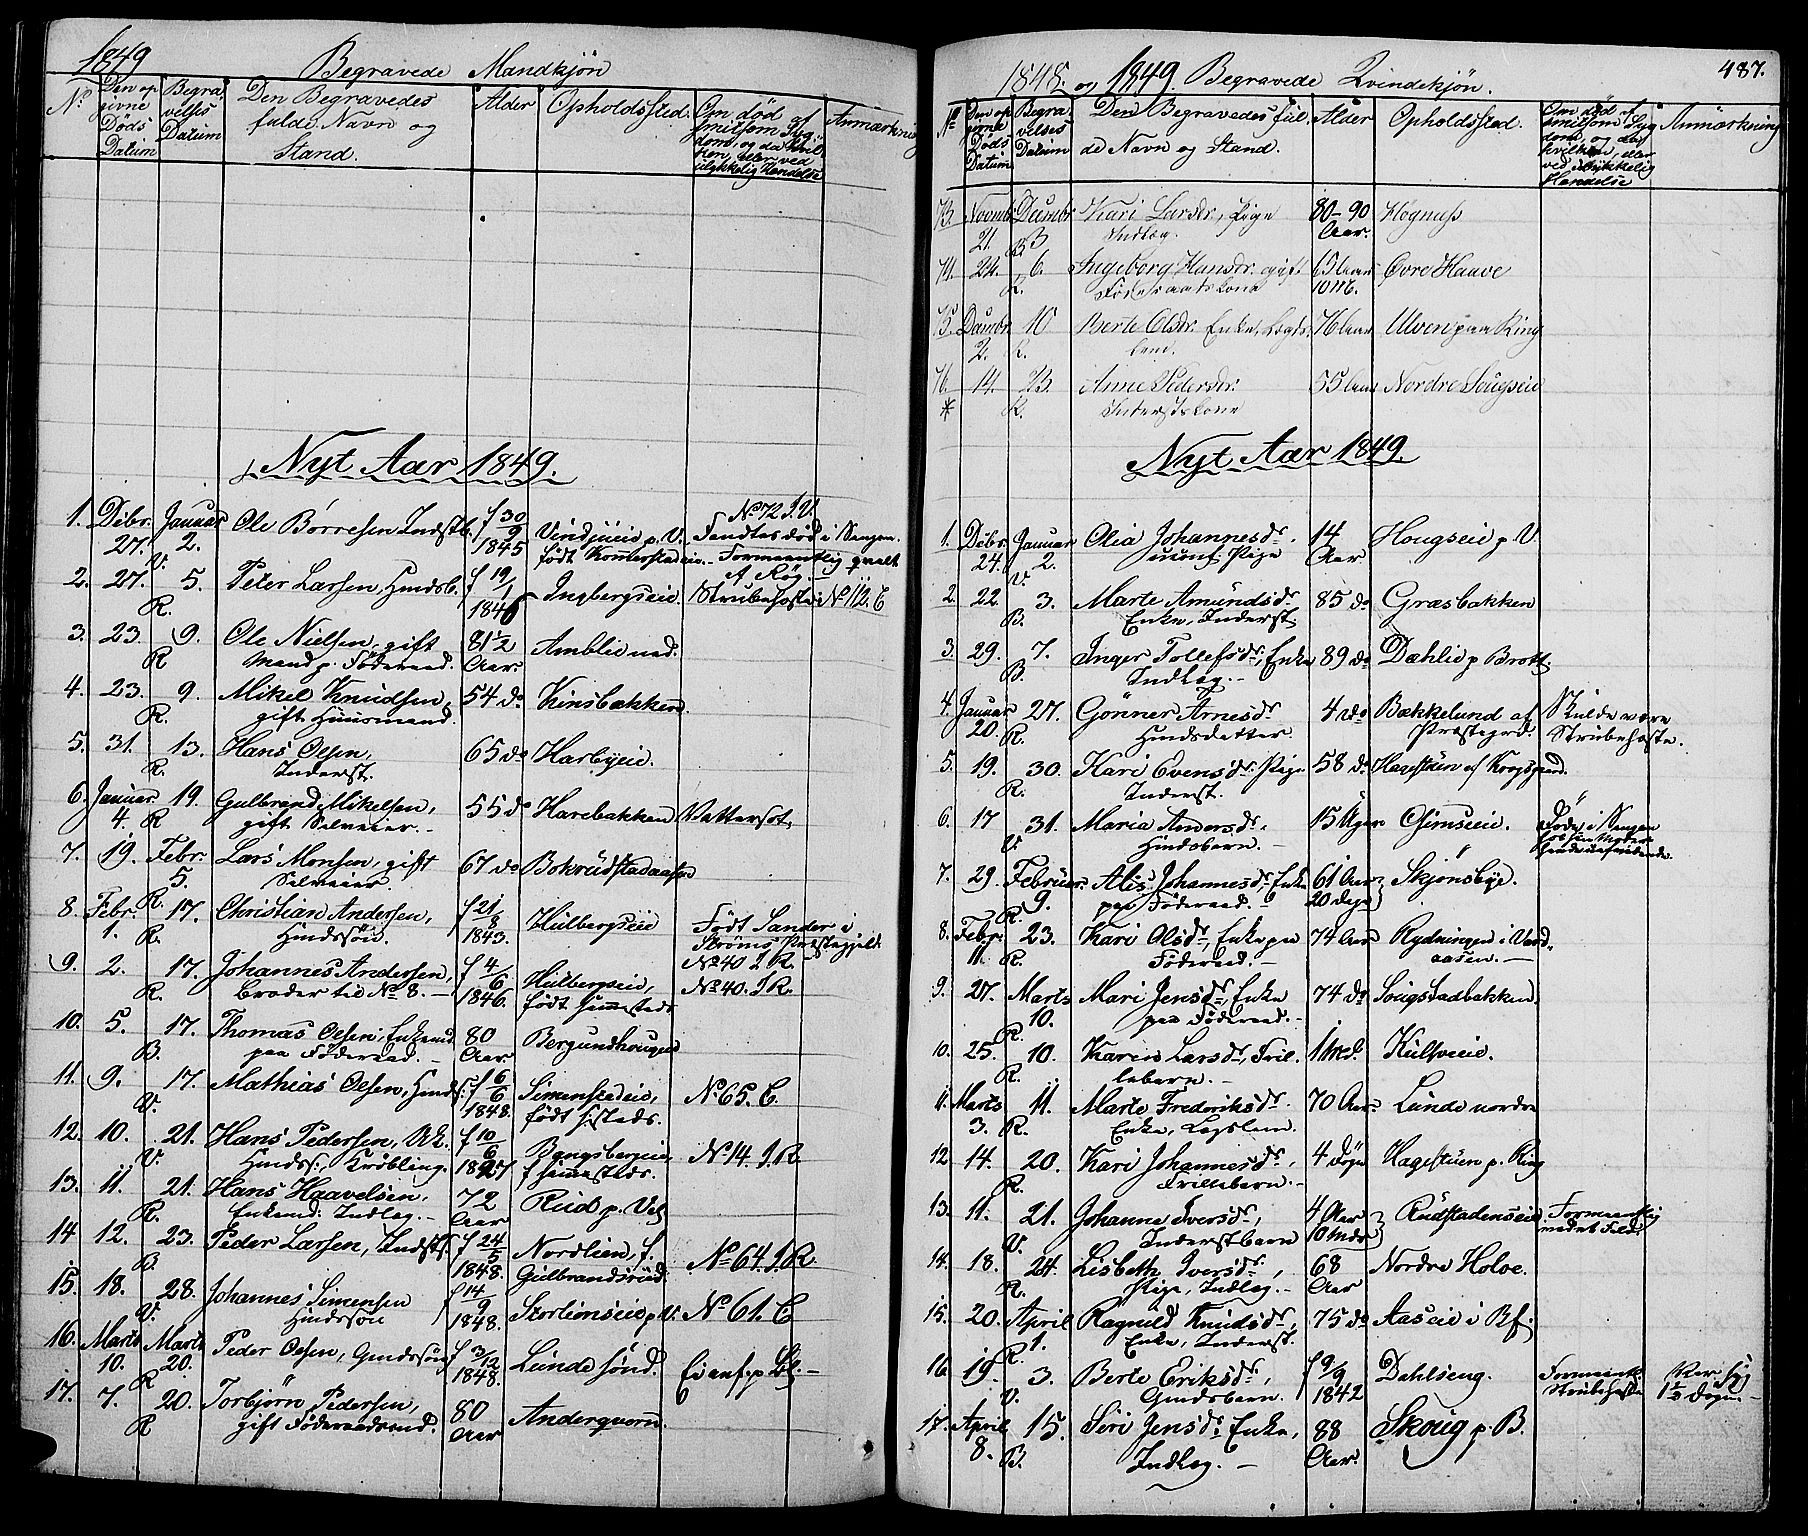 1849
Begravede Mandkjøn
No
Den op
givne
Døds
Datum
Begra
velses
Datum
Den Begravedes
fulde Navn og
Stand.
Alder
Opholdssted.
Om død af
smitsom Syg
dom, og da hvil
ken, eller ved
ulykkelig Hændelse
Anmærkning
Nyt Aar 1849.
1. Dcbr. 27. Januar 2. V. Ole Børresen Indstb. f 30/9 1845 Vindjueie p. V. født Komerstadeie No 72 I.V. Fandtes død i Sengen. Formeentlig qvalt af Røg.
2. 27. 5. R. Peter Larsen, Huusb. f 19/1 1846 Ingbergseie. Strubehoste. No 112. E
3. 23. 9. R Ole Nielsen, gift Mand p. Føderaad. 81 1/2 Aar. Amblie ned.
4. 23. 9. R. Mikel Knudsen, gift Huusmand. 54 do Kinsbakken
5. 31. 13. R. Hans Olsen, Inderst. 65 do Harbyeie.
6. Januar 4. 19. R Gulbrand Mikelsen, gift Selveier. 55 do Harebakken Vattersot.
7. 19. Febr. 5. R. Lars Monsen, gift Selveier. 67 do Bokrudstadaasen
8. Febr. 1. 17. R. Christian Andersen, Huusssøn. f 21/8 1843. Hulbergseie Født Sander i Strøms Præstegjeld. No 40 I.R.
9. 2. 17. R. Johannes Andersen, broder til No 8. f 4/6 1846. Hulbergseie, født sammesteds No 40. I.R.
10. 5. 17. B. Thomas Olsen, Enkemd. paa Føderaad. 80 Aar Bergundhougen
11. 9. 17. V. Mathias Olsen, Huuss. f 6/6 1848. Simenstadeie, født s. steds. No 65. E.
12. 10. 21. V. Hans Pedersen, Huuss., Krøbling. f 10/6 1827 Bangsbergeie, f sammesteds. No 14. I.R.
13. 11. 21. R. Hans Haavelsen, Enkemd. Indlæg. 72 Aar Rud p. Vel
14 12. 23. B. Peder Larsen, Indsts. f 24/5 1848. Nordlien, f. Gulbrandsrud. No 64. I.R.
15. 18. 28. V. Johannes Simensen Huusssøn f 14/9 1848. Stortimseie p. V. No 61. E
16. Marts 10. Marts 20. R Peder Olsen, Gaardssøn f 3/12 1848. Lunde sønd. Ei anf. p L.
17. 7. 20. R Torbjørn Pedersen, gift Føderaadsmd. 80 Aar Anderqvern.
487.
1848 og 1849. Begravede Qvindekjøn.
No
Den op
givne
Døds
Datum
Begra
velses
Datum
Den Begravedes ful
de Navn og Stand.
Alder
Opholdssted.
Om død af
smitsom Syg
dom, og da
hvilken, eller
ved ulykkelig
Hændelse
Anmærkning
73. Novmbr 21. Decmbr 3 B. Kari Larsdr, Pige Indlæg. 80-90 Aar. Hognuss
74. 24. 6. R. Ingeborg Hansdr. gift Føderaadskone 65 Aar 10 M. Øvre Haave
75. Decmbr. 2. 10 R. Berte Olsdr. Enke, Lægds lem. 76 Aar Ulven paa Ring
76. * 14. 23. R. Anne Pedersdr. Inderstkone 55 Aar Nordre Sougseie
Nyt Aar 1849.
1. Dcbr. 24. Januar 2. V Olia Johannesdr. Pige 14 Aar Hougseie p V
2. 22 3. B. Marte Amundsdr Enke, Inderst. 85 do Græsbakken
3. 29. 7. B. Inger Tollefsdr, Enke Indlæg. 89 do Dæhlie p Brott.
4. Januar 20. 27. R. Gønner Arnesdr Huusdatter. 4 do Bækkelund af Præstegrd. Skulde være Strubehoste.
5. 19. 30. R. Kari Evensdr Pige Inderst. 58 do Hagestuen af Krogsgaard.
6. 17 31. V. Maria Andersdr. Huusbarn. 15 Uger Osimseie. Døde i Sengen hos sin Moder
7. 29. Februar 9. R. Alis Johannesdr, Enke paa Føderaad. 61 Aar 20 Dage Skjønsbye.
8. Febr. 11. 23. R. Kari Olsdr, Enke paa Føderaad. 74 Aar Rydningen i Vardaasen.
9. 27. Marts 10. R. Mari Jensdr, Enke paa Føderaad. 74 do Sougstadbakken
10. 25. 10. R. Karen Larsdr, Frillebarn. 1 Md. Kulsveie.
11. Marts 3. 11. R. Marte Frederiksdr. Enke, Lægslem. 70 Aar Lunde nordre
12 14. 20. R. Kari Johannesdr, Frillebarn. 4 Døgn Hagestuen p. Ring
13. 11. 21. V. Johanne Iversdr, Inderstbarn 4 Aar 10 Mdr Rudstadenseie Formeentlig
14. 18. 24. R. Lisbeth Iversdr, Pige, Indlæg. 68 Aar Nordre Holve.
15. 20. April 1. R. Ragnild Knudsdr, Enke, Inderst. 75 do Aaseie i Bf.
16. 19. 3. V. Berte Eriksdr, Gaardsbarn. f 9/9 1842 Dahlseng. Formeentl. Strubehoste Var syg 1 1/2 Døgn.
17. April 8. 15. B. Siri Jensdr Enke, Indlæg. 88 Aar Skoug p. B.